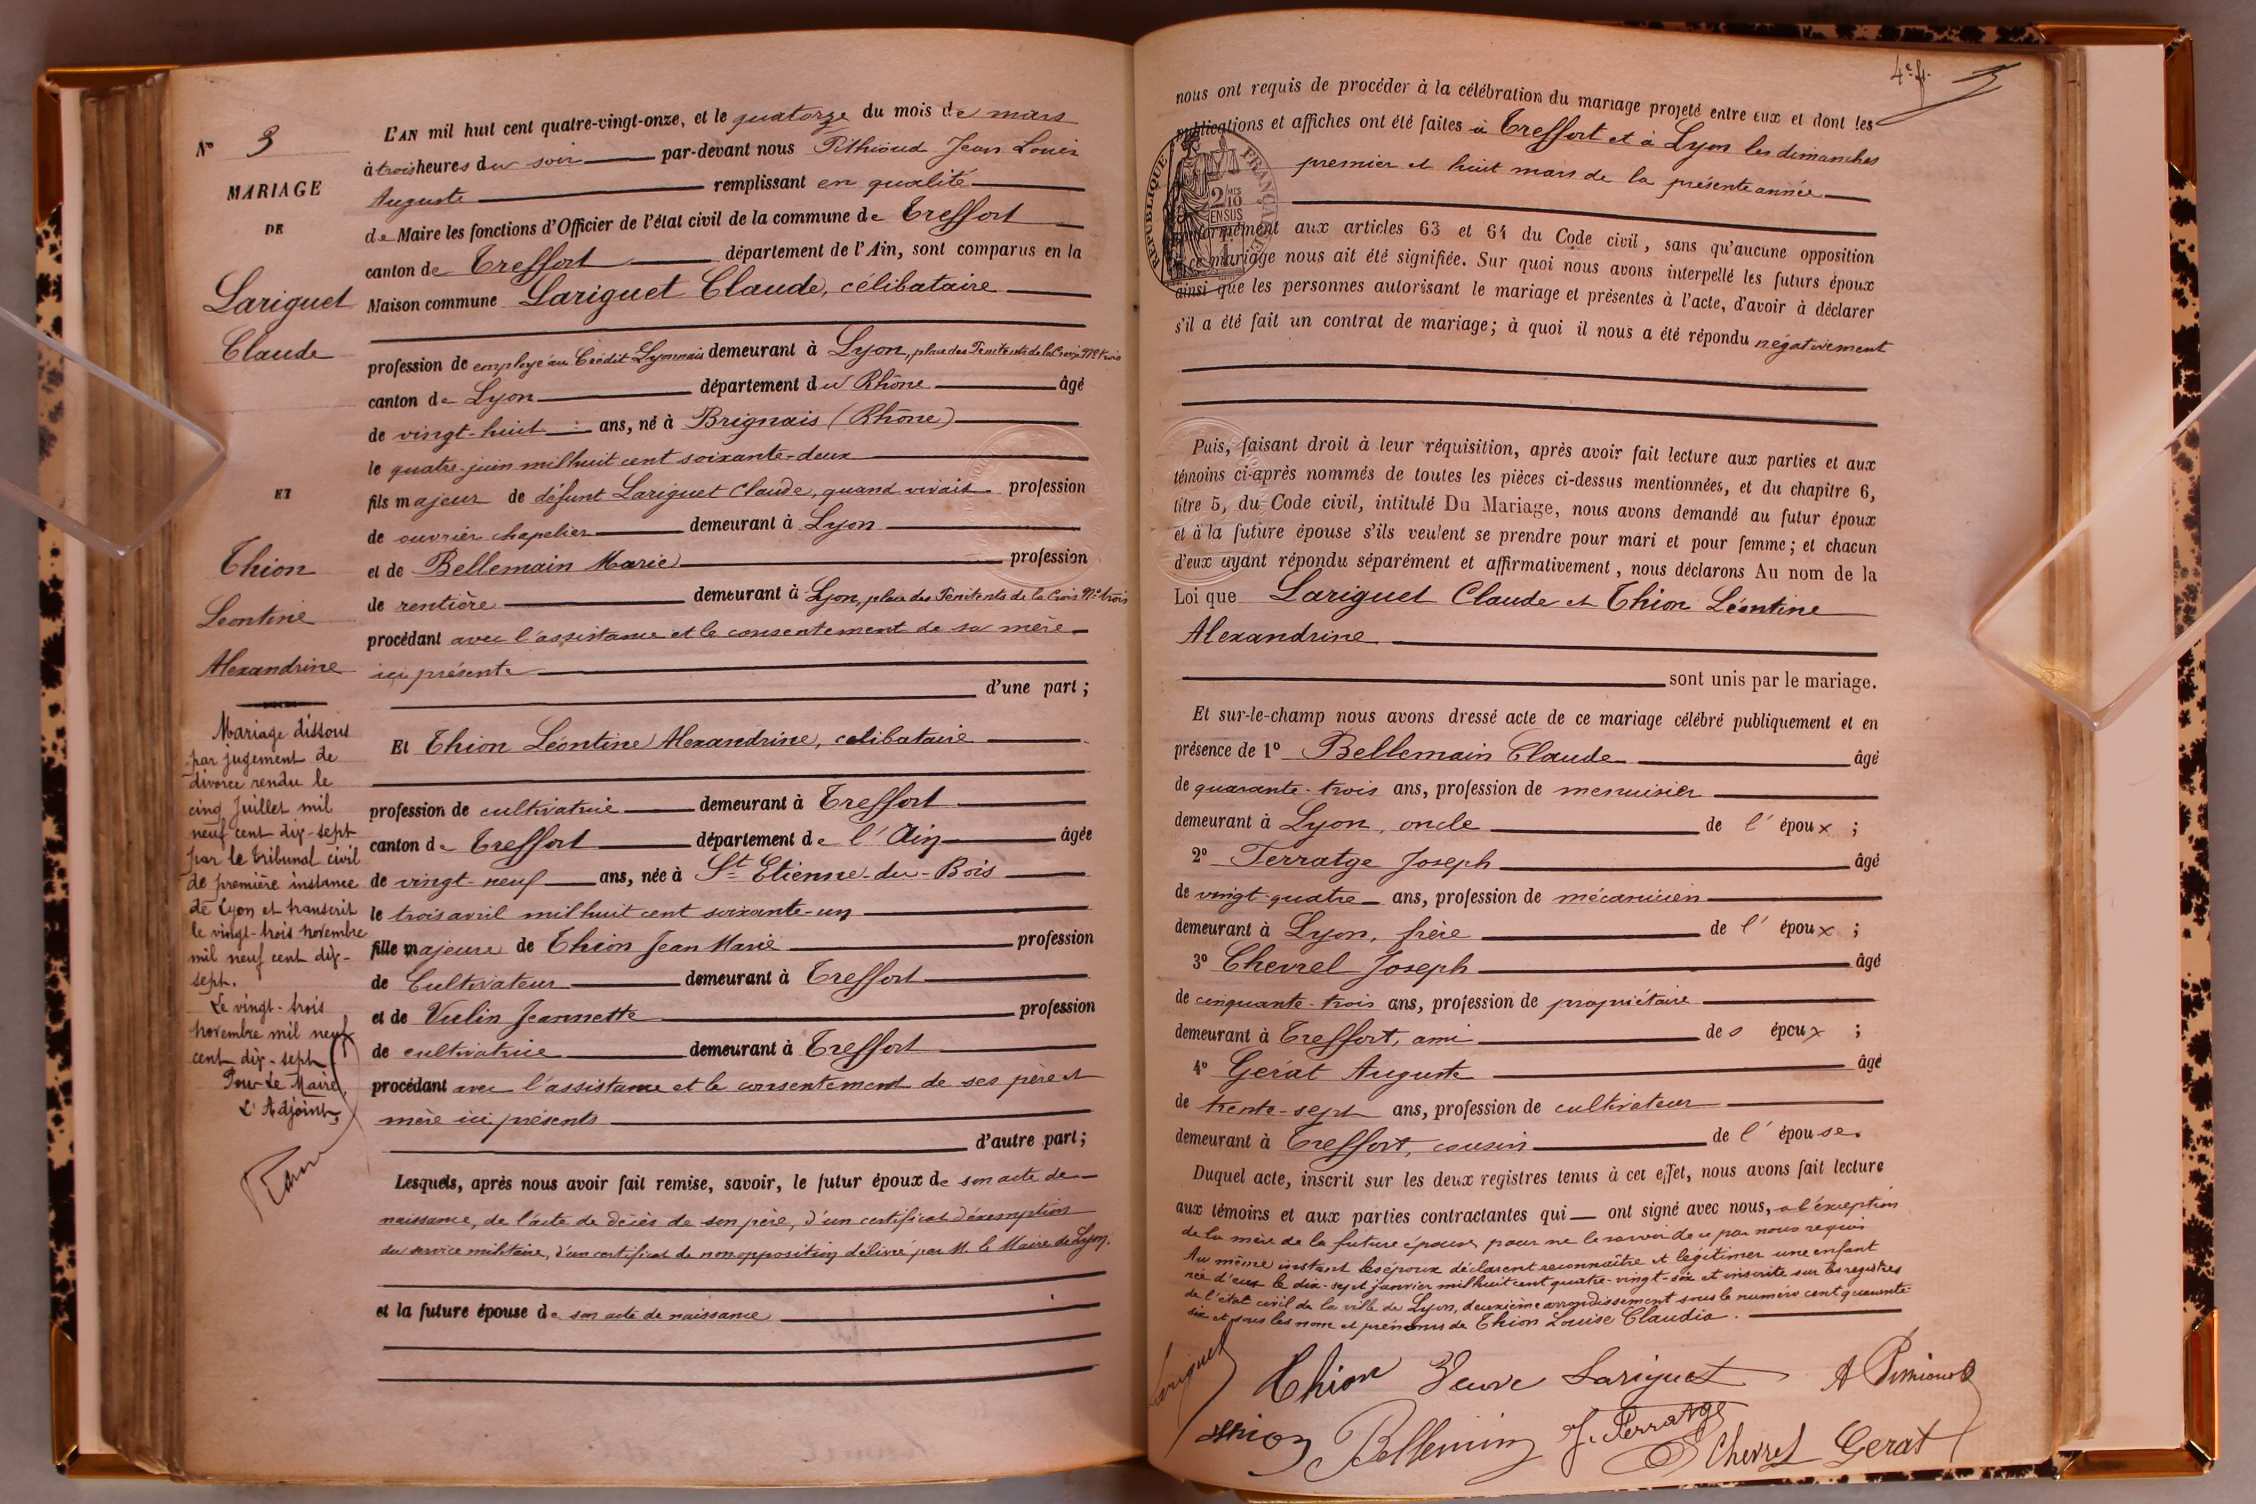 N° 3
MARIAGE
DE
Lariguet
Claude
ET
Thion
Léontine
Alexandrine
Mariage dissout
par jugement de
divorce rendu le
cinq Juillet mil
neuf cent dix-sept
par le Tribunal civil
de première instance
de Lyon et transcrit
le vingt-trois novembre
mil neuf cent dix-
sept.
Le vingt-trois
novembre mil neuf
cent dix-sept
Pour Le Maire,
L'Adjoint,
L'AN mil huit cent quatre-vingt-onze, et le quatorze du mois de mars
à trois heures du soir par-devant nous Pithioud Jean Louis
Auguste remplissant en qualité
de Maire les fonctions d'Officier de l'état civil de la commune de Treffort
canton de Treffort département de l'Ain, sont comparus en la
Maison commune Lariguet Claude, célibataire
profession de employé au Crédit Lyonnais demeurant à Lyon, place des Pénitents de la Croix N° trois
canton de Lyon département du Rhône âgé
de vingt-huit ans, né à Brignais (Rhône)
le quatre juin mil huit cent soixante-deux
fils majeur de défunt Lariguet Claude, quand vivait profession
de ouvrier chapelier demeurant à Lyon
et de Bellemain Marie profession
de rentière demeurant à Lyon, place des Pénitents de la Croix N° trois
procédant avec l'assistance et le consentement de sa mère
ici présente
d'une part;
Et Thion Léontine Alexandrine, célibataire
profession de cultivatrice demeurant à Treffort
canton de Treffort département de l'Ain âgée
de vingt-neuf ans, née à St Etienne-du-Bois
le trois avril mil huit cent soixante-un
fille majeure de Thion Jean Marie profession
de Cultivateur demeurant à Treffort
et de Vulin Jeannette profession
de cultivatrice demeurant à Treffort
procédant avec l'assistance et le consentement de ses père et
mère ici présents
d'autre part;
Lesquels, après nous avoir fait remise, savoir, le futur époux de son acte de
naissance, de l'acte de décès de son père, d'un certificat d'exemption
du service militaire, d'un certificat de non opposition délivré par M. le Maire de Lyon.
et la future épouse de son acte de naissance
4e f.
nous ont requis de procéder à la célébration du mariage projeté entre eux et dont les
publications et affiches ont été faites à Treffort et à Lyon les dimanches
premier et huit mars de la présente année
REPUBLIQUE FRANÇAISE
2/10 EN SUS
conformément aux articles 63 et 64 du Code civil, sans qu'aucune opposition
à ce mariage nous ait été signifiée. Sur quoi nous avons interpellé les futurs époux
ainsi que les personnes autorisant le mariage et présentes à l'acte, d'avoir à déclarer
s'il a été fait un contrat de mariage; à quoi il nous a été répondu négativement
Puis, faisant droit à leur réquisition, après avoir fait lecture aux parties et aux
témoins ci-après nommés de toutes les pièces ci-dessus mentionnées, et du chapitre 6,
titre 5, du Code civil, intitulé Du Mariage, nous avons demandé au futur époux
et à la future épouse s'ils veulent se prendre pour mari et pour femme; et chacun
d'eux ayant répondu séparément et affirmativement, nous déclarons Au nom de la
Loi que Lariguet Claude et Thion Léontine
Alexandrine
sont unis par le mariage.
Et sur-le-champ nous avons dressé acte de ce mariage célébré publiquement et en
présence de 1° Bellemain Claude âgé
de quarante-trois ans, profession de menuisier
demeurant à Lyon, oncle de l'époux;
2° Terratge Joseph âgé
de vingt-quatre ans, profession de mécanicien
demeurant à Lyon, frère de l'époux;
3° Chevrel Joseph âgé
de cinquante-trois ans, profession de propriétaire
demeurant à Treffort, ami des époux;
4° Gerat Auguste âgé
de trente-sept ans, profession de cultivateur
demeurant à Treffort, cousin de l'épouse.
Duquel acte, inscrit sur les deux registres tenus à cet effet, nous avons fait lecture
aux témoins et aux parties contractantes qui ont signé avec nous, à l'exception
de la mère de la future épouse pour ne le savoir de ce par nous requis
Au même instant les époux déclarent reconnaître et légitimer une enfant
née d'eux le dix-sept janvier mil huit cent quatre-vingt-six et inscrite sur les registres
de l'état civil de la ville de Lyon, deuxième arrondissement sous le numéro cent quarante-
six et sous les nom et prénoms de Thion Louise Claudia.
Lariguet Thion Veuve Lariguet A Pithioud
Thion Bellemin J. Terratge Chevrel Gerat